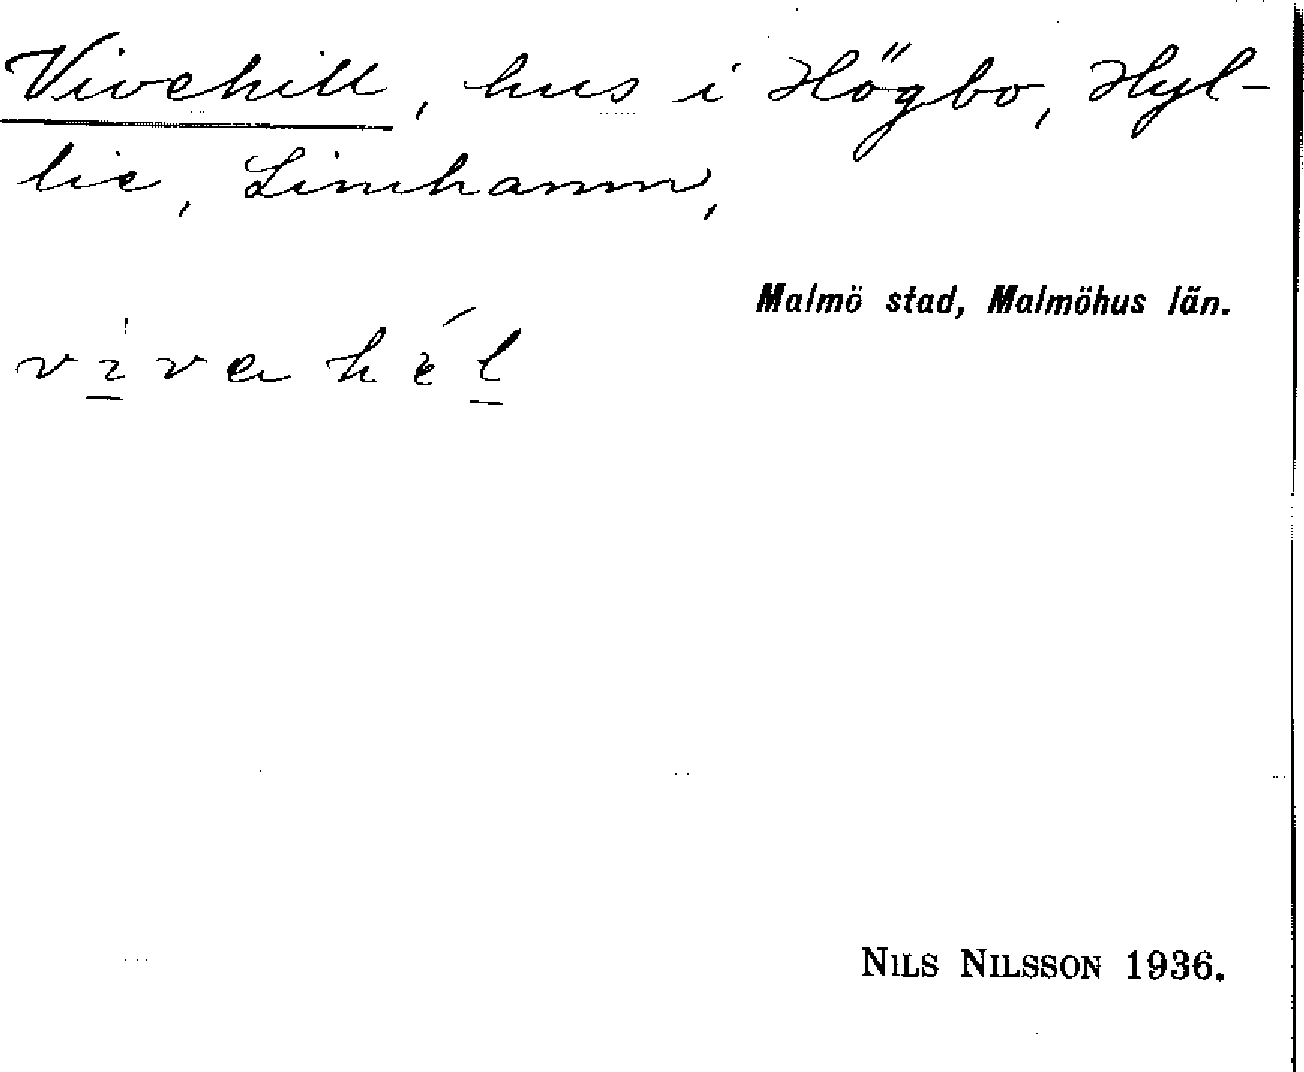 Vivehill, hus i Högbo, Hyl-
lie, Limhamn,
Malmö stad, Malmöhus län.
vivahel
NILS NILSSON 1936.